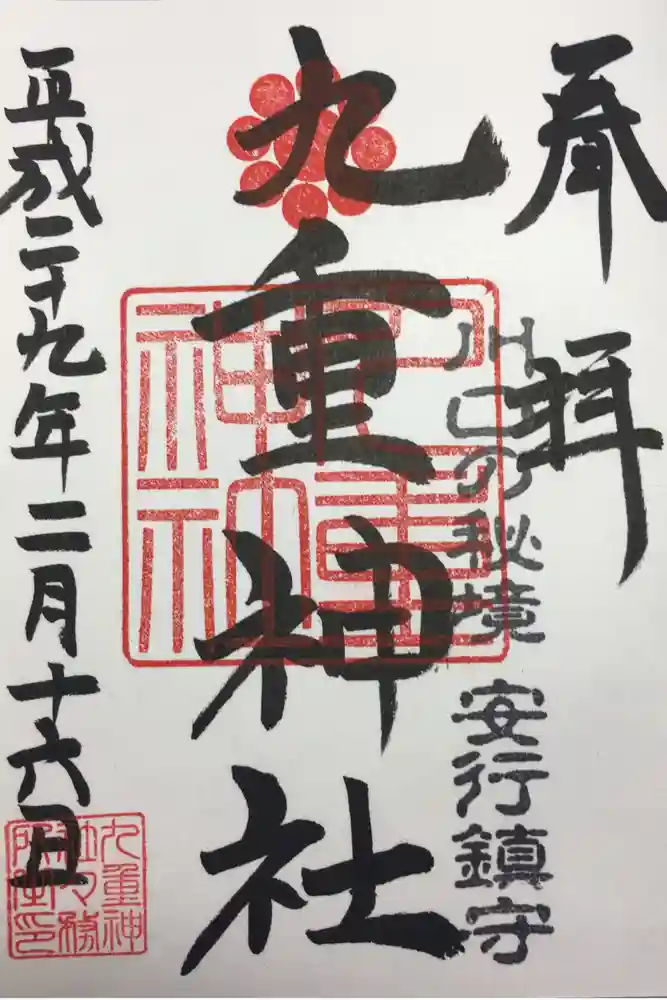 奉拝
川口の秘境 安行鎮守
九重神社
九重神社
平成二十九年二月十六日
九重神社社務所之印